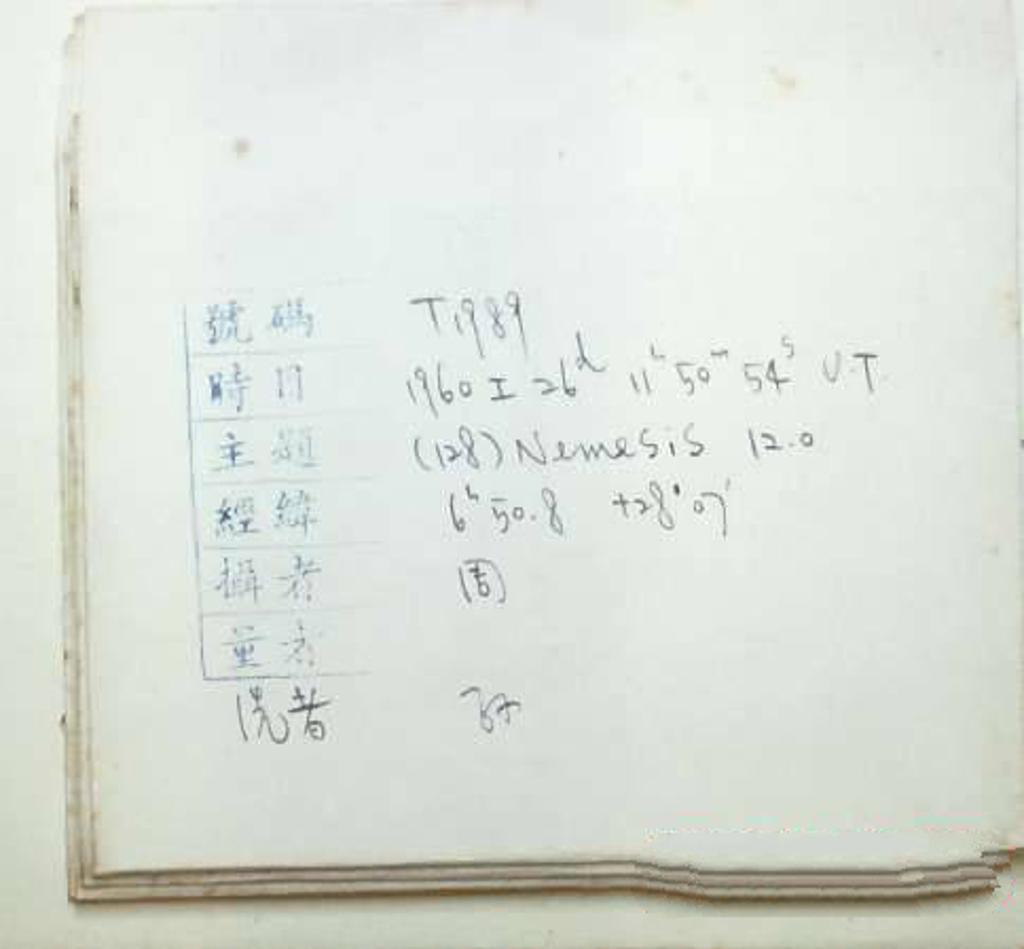 號碼 T1989
時日 1960 I 26d 11h 50m 54s U.T.
主題 (128) Nemesis 12.0
經緯 6h 50.8 +28° 07'
攝者 周
量者
洗者